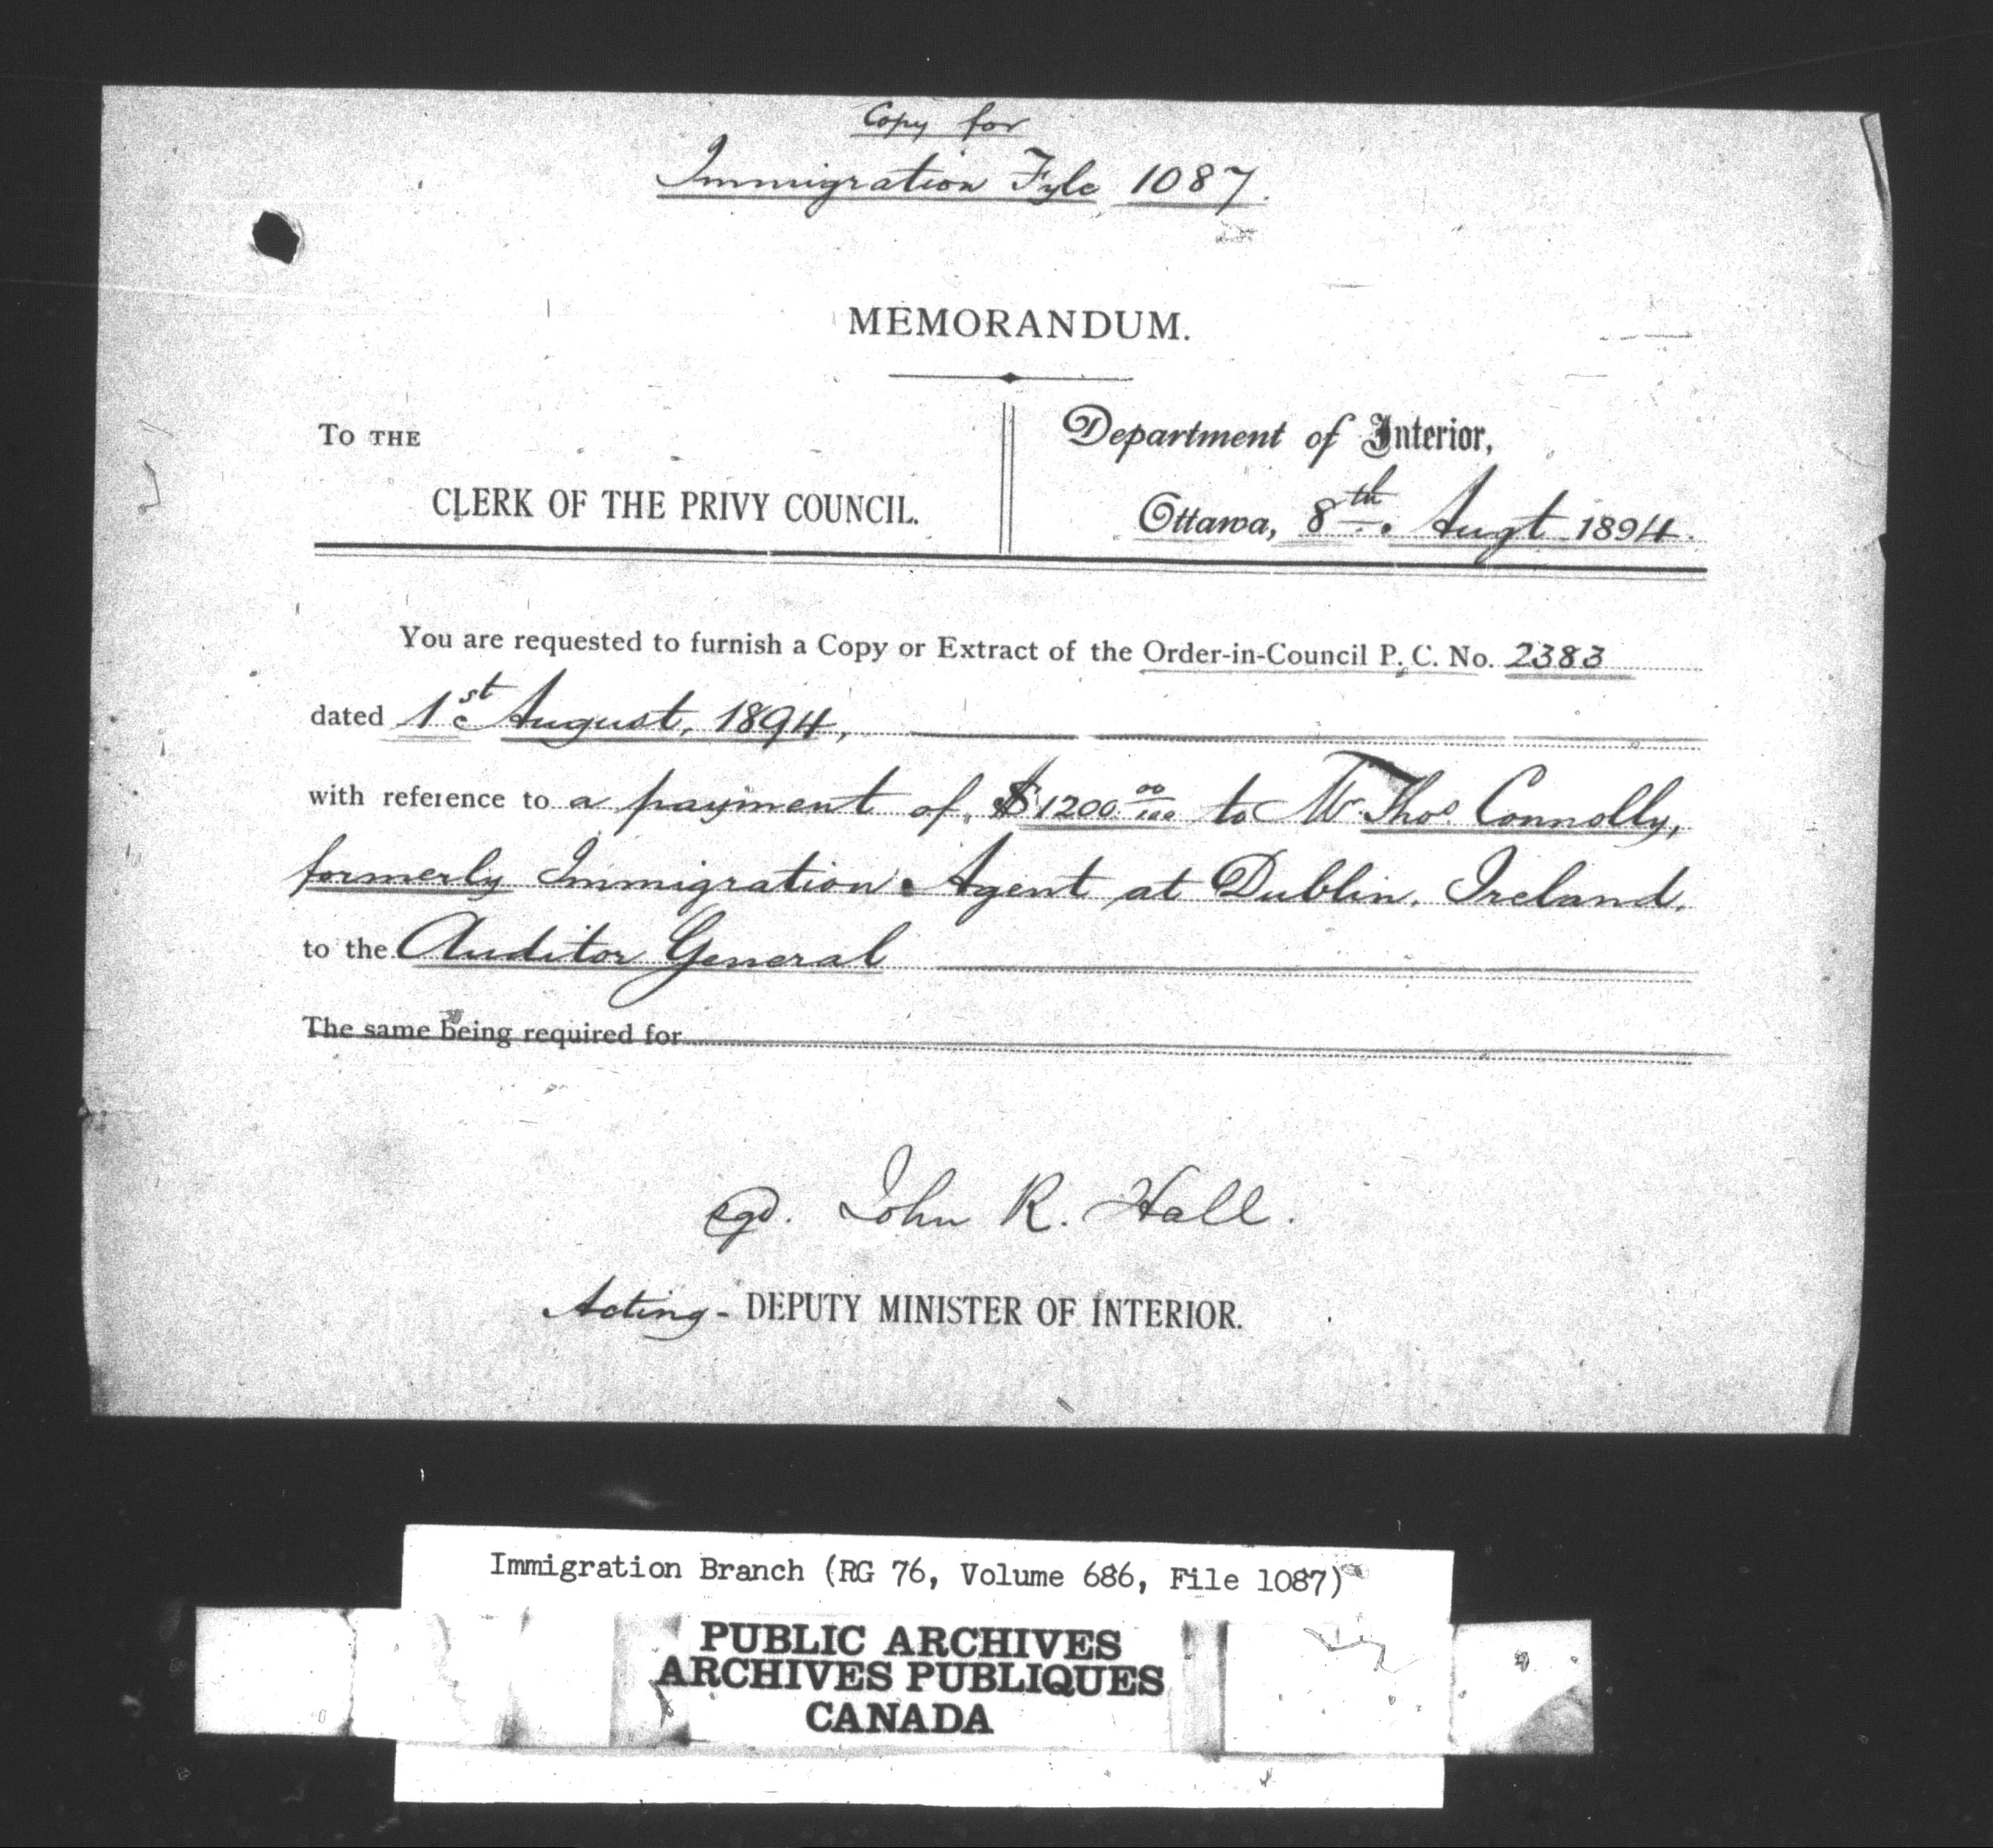 Copy for
Immigration Fyle 1087.
MEMORANDUM.
To THE
CLERK OF THE PRIVY COUNCIL.
Department of Interior,
Ottawa, 8th. Augt 1894.
You are requested to furnish a Copy or Extract of the Order-in-Council P. C. No. 2383
dated 1st August, 1894,
with reference to a payment of $1200 00/100 to Mr. Thos Connolly,
formerly Immigration Agent at Dublin, Ireland,
to the Auditor General
The same being required for
sgd. John R. Hall.
Acting - DEPUTY MINISTER OF INTERIOR.
Immigration Branch (RG 76, Volume 686, File 1087)
PUBLIC ARCHIVES
ARCHIVES PUBLIQUES
CANADA